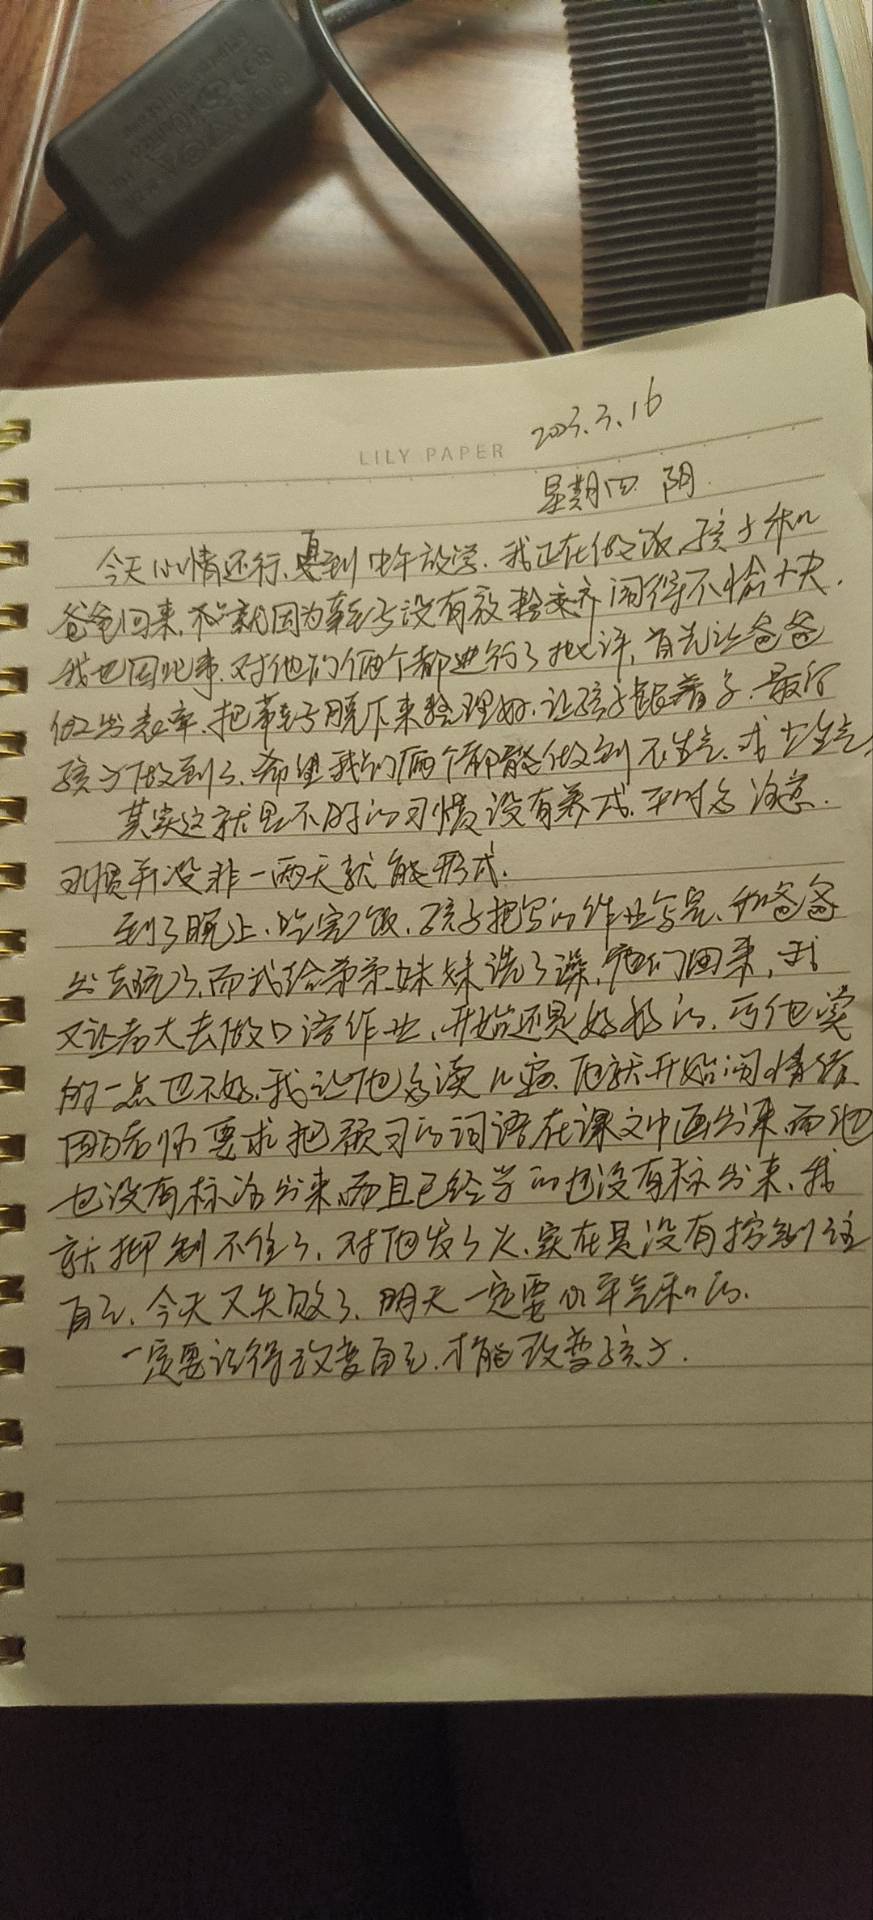 LILY PAPER
2023.3.16
星期四 阴
今天心情还行、直到中午放学、我正在做饭,孩子和
爸爸回来,就因为鞋子没有放整齐闹得不愉快,
我也因此事,对他们俩个都进行了批评,首先让爸爸
做出表率,把鞋子脱下来整理好,让孩子跟着学,最后
孩子做到了、希望我们俩个都能做到不生气、或少生气,
其实这就是不好的习惯没有养成,平时多注意.
习惯并没非一两天就能形成.
到了晚上、吃完饭,孩子把写的作业写完、和爸爸
出去玩了,而我给弟弟妹妹洗了澡,他们回来,我
又让老大去做口语作业,开始还是好好的,可他读
的一点也不好,我让他多读几遍、他就开始闹情绪
因为老师要求把预习的词语在课文中画出来而他
也没有标注出来,而且已经学的也没有标出来、我
就抑制不住了,对他发了火,实在是没有控制住
自己、今天又失败了、明天一定要心平气和的.
一定要记得改变自己,才能改变孩子.